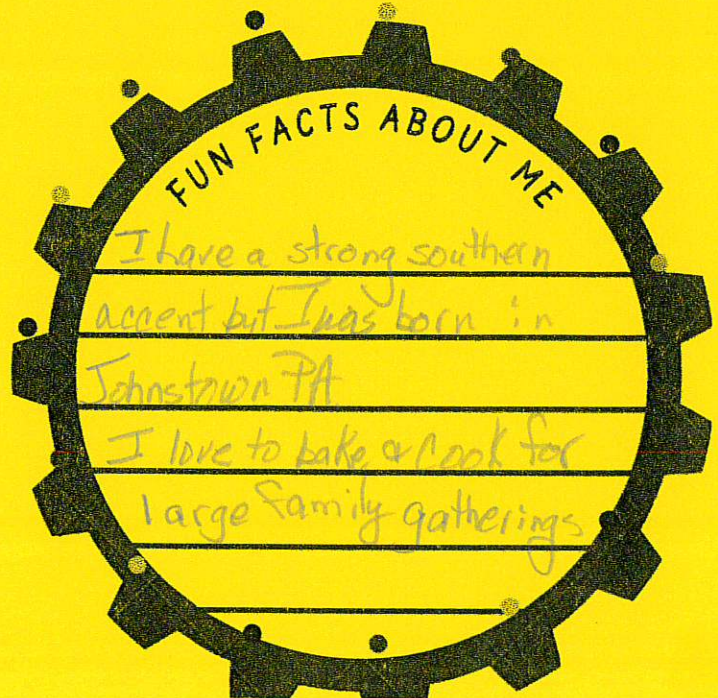 FUN FACTS ABOUT ME
I have a strong southern
accent but I was born in
Johnstown PA
I love to bake & cook for
large family gatherings